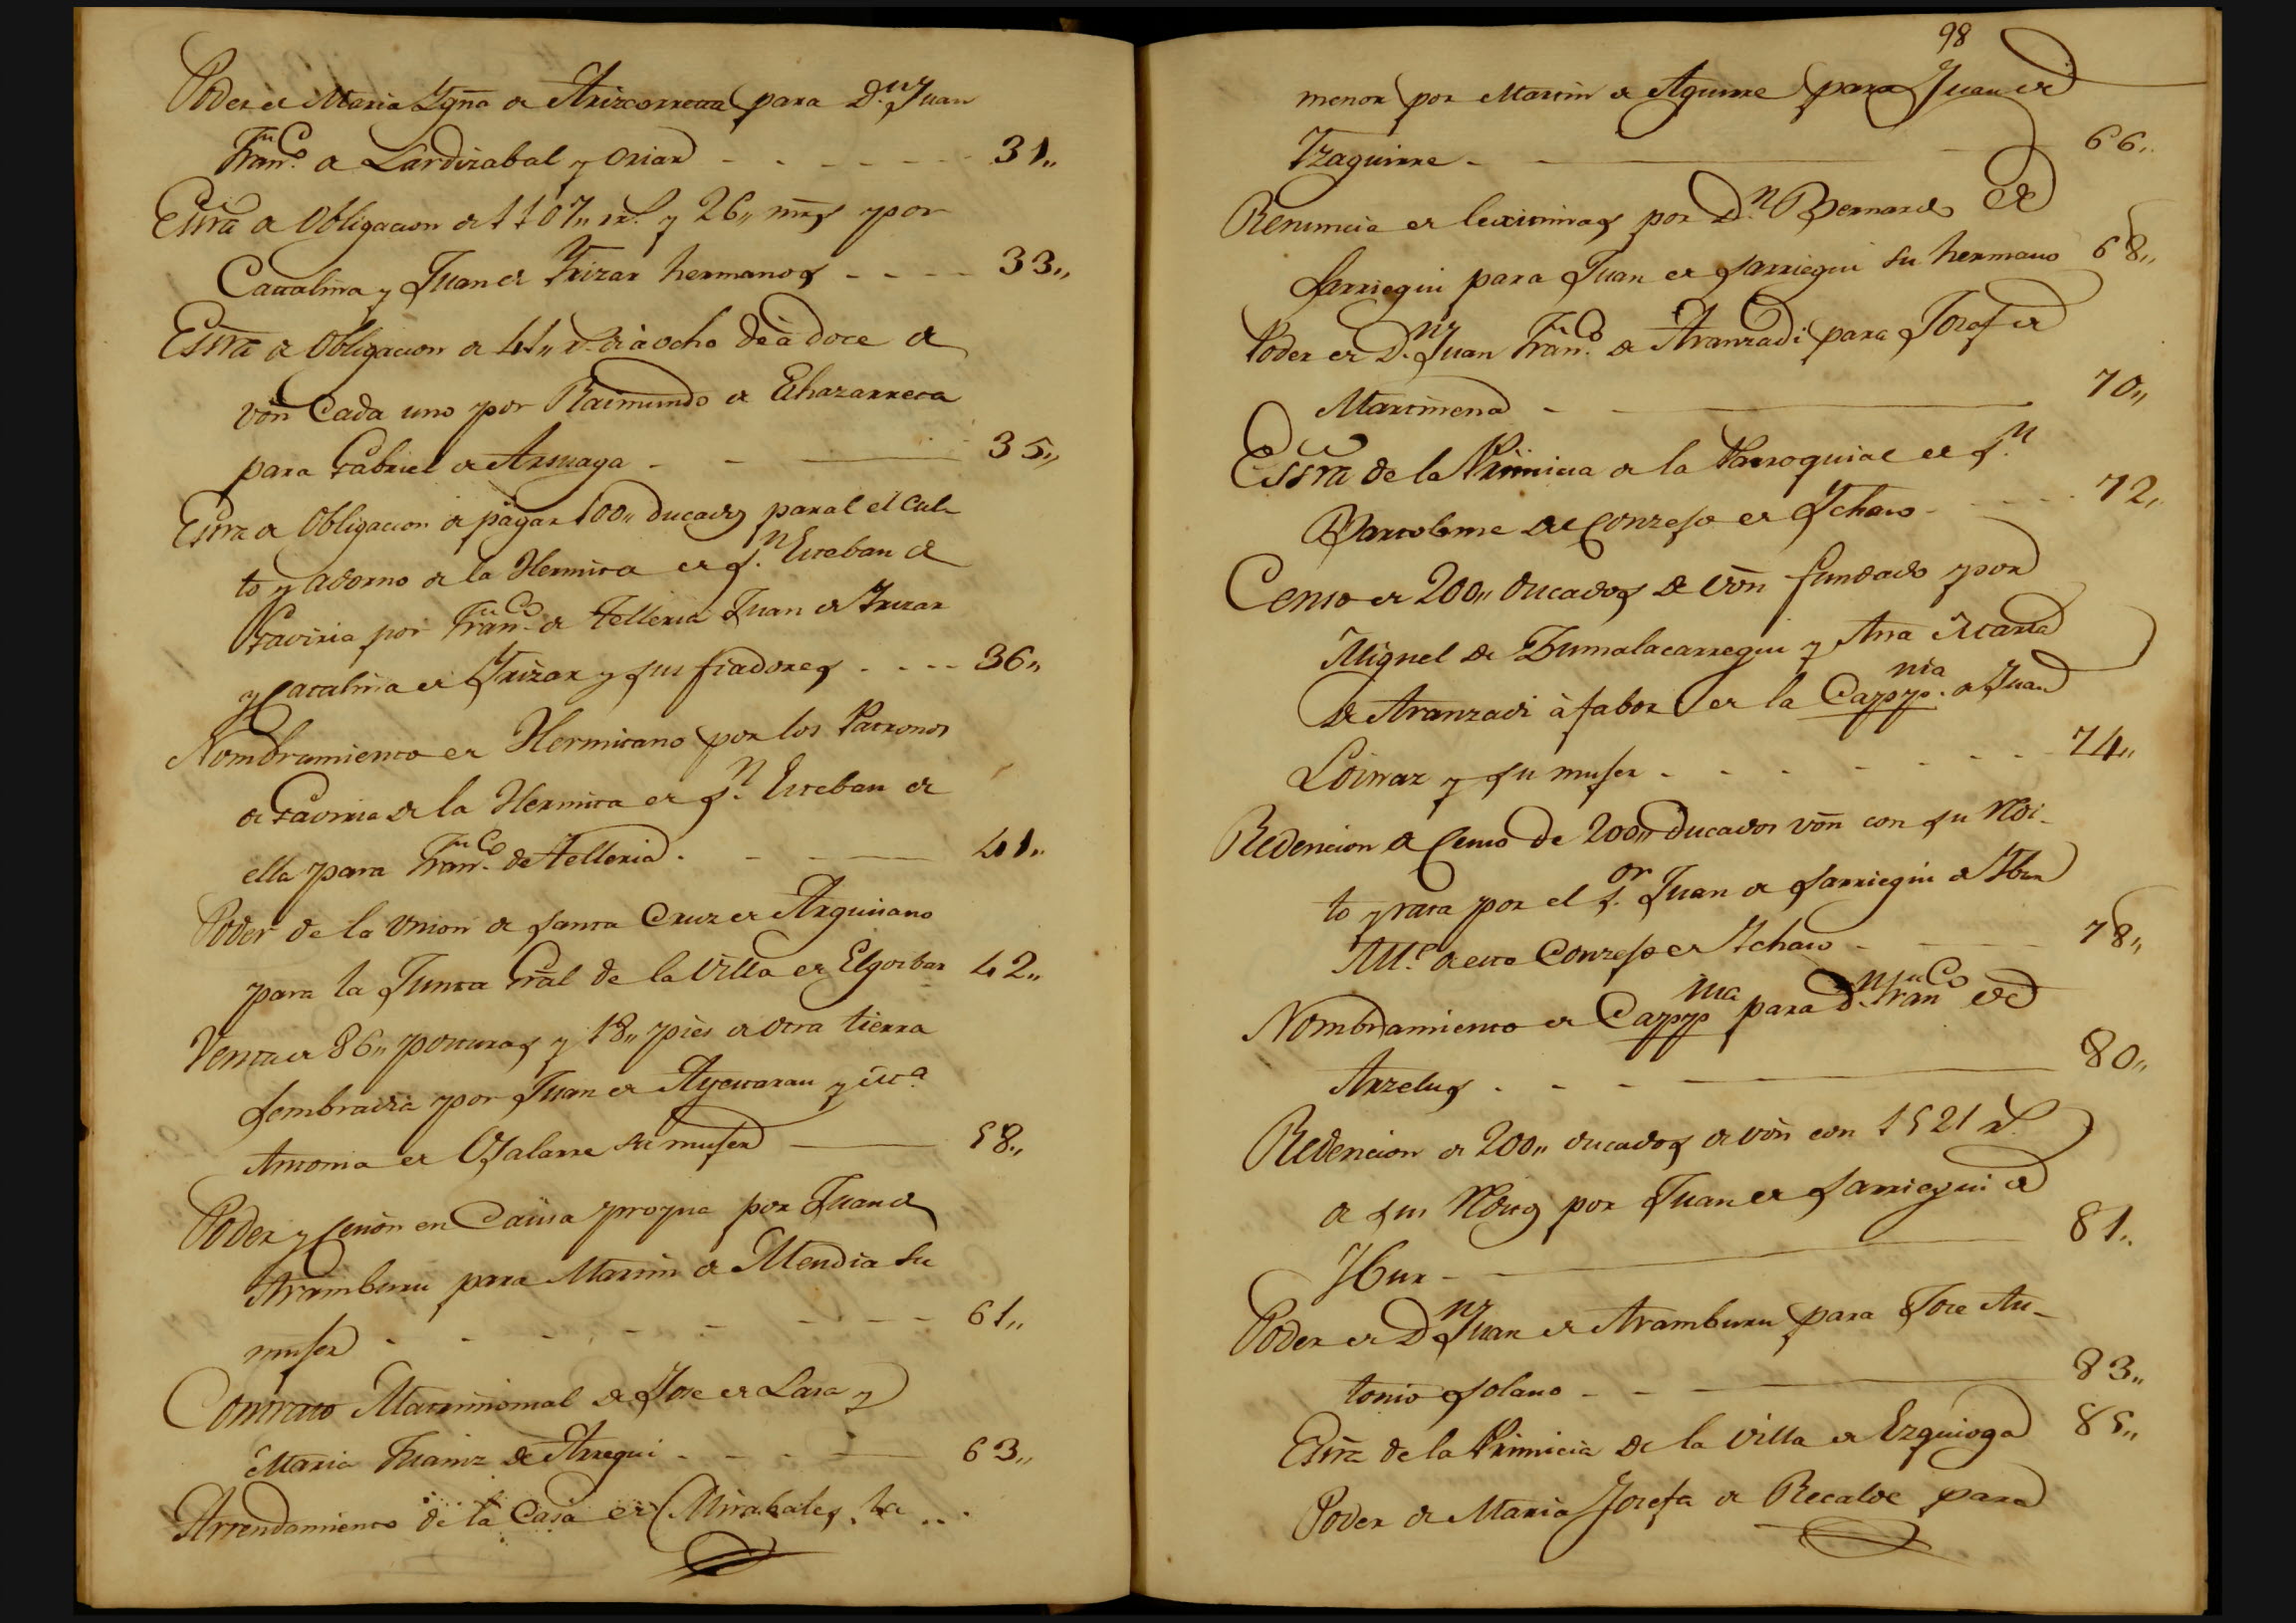 Poder de Maria Ygña de Arizcorreta para D.n Juan
Fran.co de Lardizabal y Oriar - - - - - - 31,,
Essra de Obligacion de 1107,, rs. y 26,, mrs por
Catalina y Juan de Yrizar hermanos - - - - 33,,
Essra de Obligacion de 41,, ps. de à ocho de à doce de
von Cada uno por Raimundo de Elhazarreta
para Gabriel de Arsuaga - - - 35,,
Essra de Obligacion de pagar 100,, ducados paral el cul-
to y adorno de la Hermita de S.n Esteban de
Gaviria por Fran.co de Telleria Juan de Yrizar
y Catalina de Yrizar y sus fiadores - - - - 36,,
Nombramiento de Hermitano por los Patronos
de Gaviria de la Hermita de S.n Esteban de
ella para Fran.co de Telleria - - - 41,,
Poder de la Union de Santa Cruz de Arguisano
para la Junta Gral de la Villa de Elgoibar 42,,
Venta de 86,, posturas y 18,, pies de otra tierra
Sembradia por Juan de Ayestaran y
Antonia de Ojalarre su muger - 58,,
Poder y Cesion en Causa propia por Juan de
Aramburu para Martin de Mendia su
muger - - - - - - - - 61,,
Contrato Matrimonial de Jose de Lasa y
Maria de Arregui - - - - 63,,
Arrendamiento de la Casa de Mirabales, la
98
menor por Martin de Aguirre para Juan de
Yzaguirre - - - 66,,
Renuncia de lexitimas por D.n Bernardo de
Sarriegui para Juan de Sarriegui su hermano 68,,
Poder de D.n Juan Fran.co de Aranzadi para Josef de
Martinena - - 70,,
Essra de la Primicia de la Parroquial de S.n
Bartolome del Conzejo de Ychaso - - - - 72,,
Censo de 200,, ducados de von fundado por
Miguel de Zumalacarregui y Ana Maria
de Aranzadi à fabor de la Capp.nia de Juan
Loinaz y su muger - - - - - - - 74,,
Redencion de Censo de 200,, ducados von con su Rdi-
to prata por el S.or Juan de Sarriegui de Ybur
All.e de este Conzejo de Ychaso - - - 78,,
Nombramiento de Capp.nia para D.n Fran.co de
Arzelus - - - - 80,,
Redencion de 200,, ducados de von con 1521 rs.
de sus Rditos por Juan de Sarriegui de
Ybur - - 81,,
Poder de D.n Juan de Aramburu para Jose An-
tonio Solano - - - 83,,
Essra de la Primicia de la Villa de Ezquioga 85,,
Poder de Maria Josefa de Recalde para